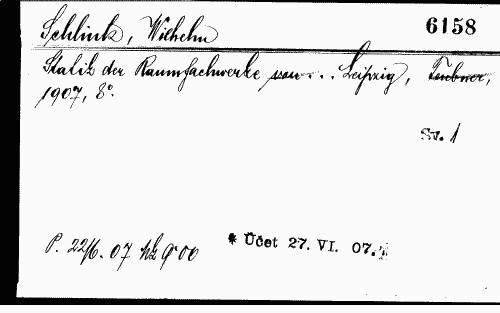 Schlink, Wilhelm 6158
Statik der Raumfachwerke von... Leipzig, Teubner,
1907, 8°.
Sv. 1
P. 22/6. 07 Kč 9·00 * Účet 27. VI. 07.